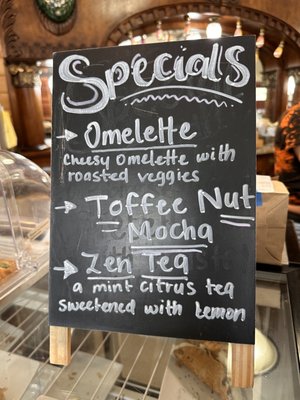 Specials
→ Omelette
cheesy omelette with
roasted veggies
→ Toffee Nut
Mocha
→ Zen Tea
a mint citrus tea
sweetened with Lemon